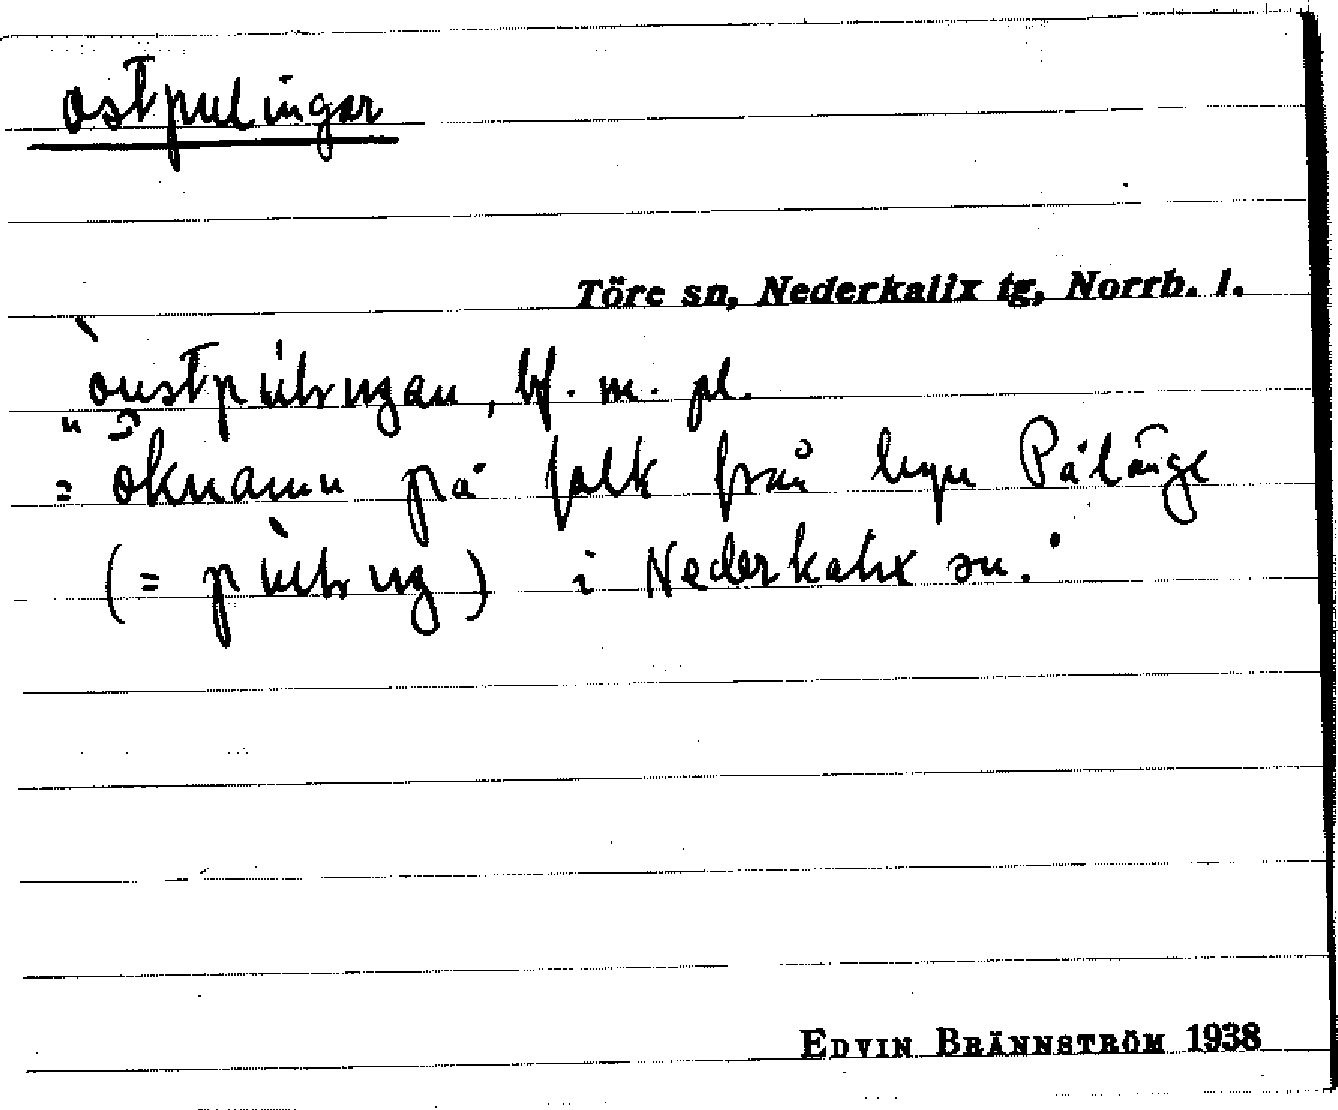 ostpulingar
Töre sn, Nederkalix tg, Norrb. l.
bf. m. pl.
= öknamn på folk från byn Pålänge
i Nederkalix sn.
EDVIN BRÄNNSTRÖM 1938